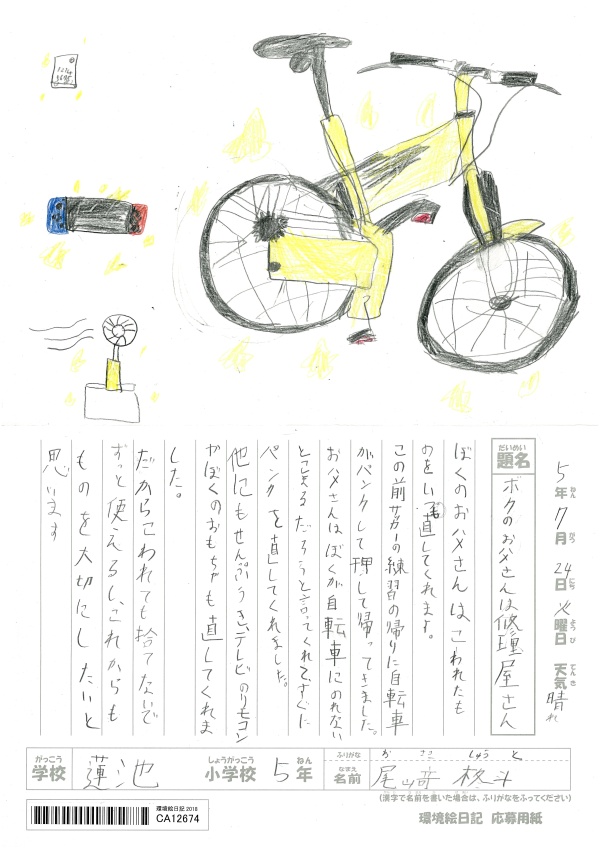 5年7月24日火曜日 天気晴れ
ねん がつ にち ようび てんき
だいめい
題名 ボクのお父さんは修理屋さん
ぼくのお父さんはこわれたも
のをいつも直してくれます。
この前サッカーの練習の帰りに自転車
がパンクして押して帰ってきました。
お父さんはぼくが自転車にのれない
と困るだろうと言ってくれて、すぐに
パンクを直してくれました。
他にもせんぷうき、テレビのリモコン
やぼくのおもちゃも直してくれま
した。
だからこわれても捨てないで
ずっと使えるし、これからも
ものを大切にしたいと
思います
がっこう しょうがっこう ねん
学校 蓮池 小学校 5年
ふりがな お ざき しゅう と
なまえ
名前 尾﨑 柊斗
(漢字で名前を書いた場合は、ふりがなをふってください)
環境絵日記 2018
CA12674
環境絵日記 応募用紙